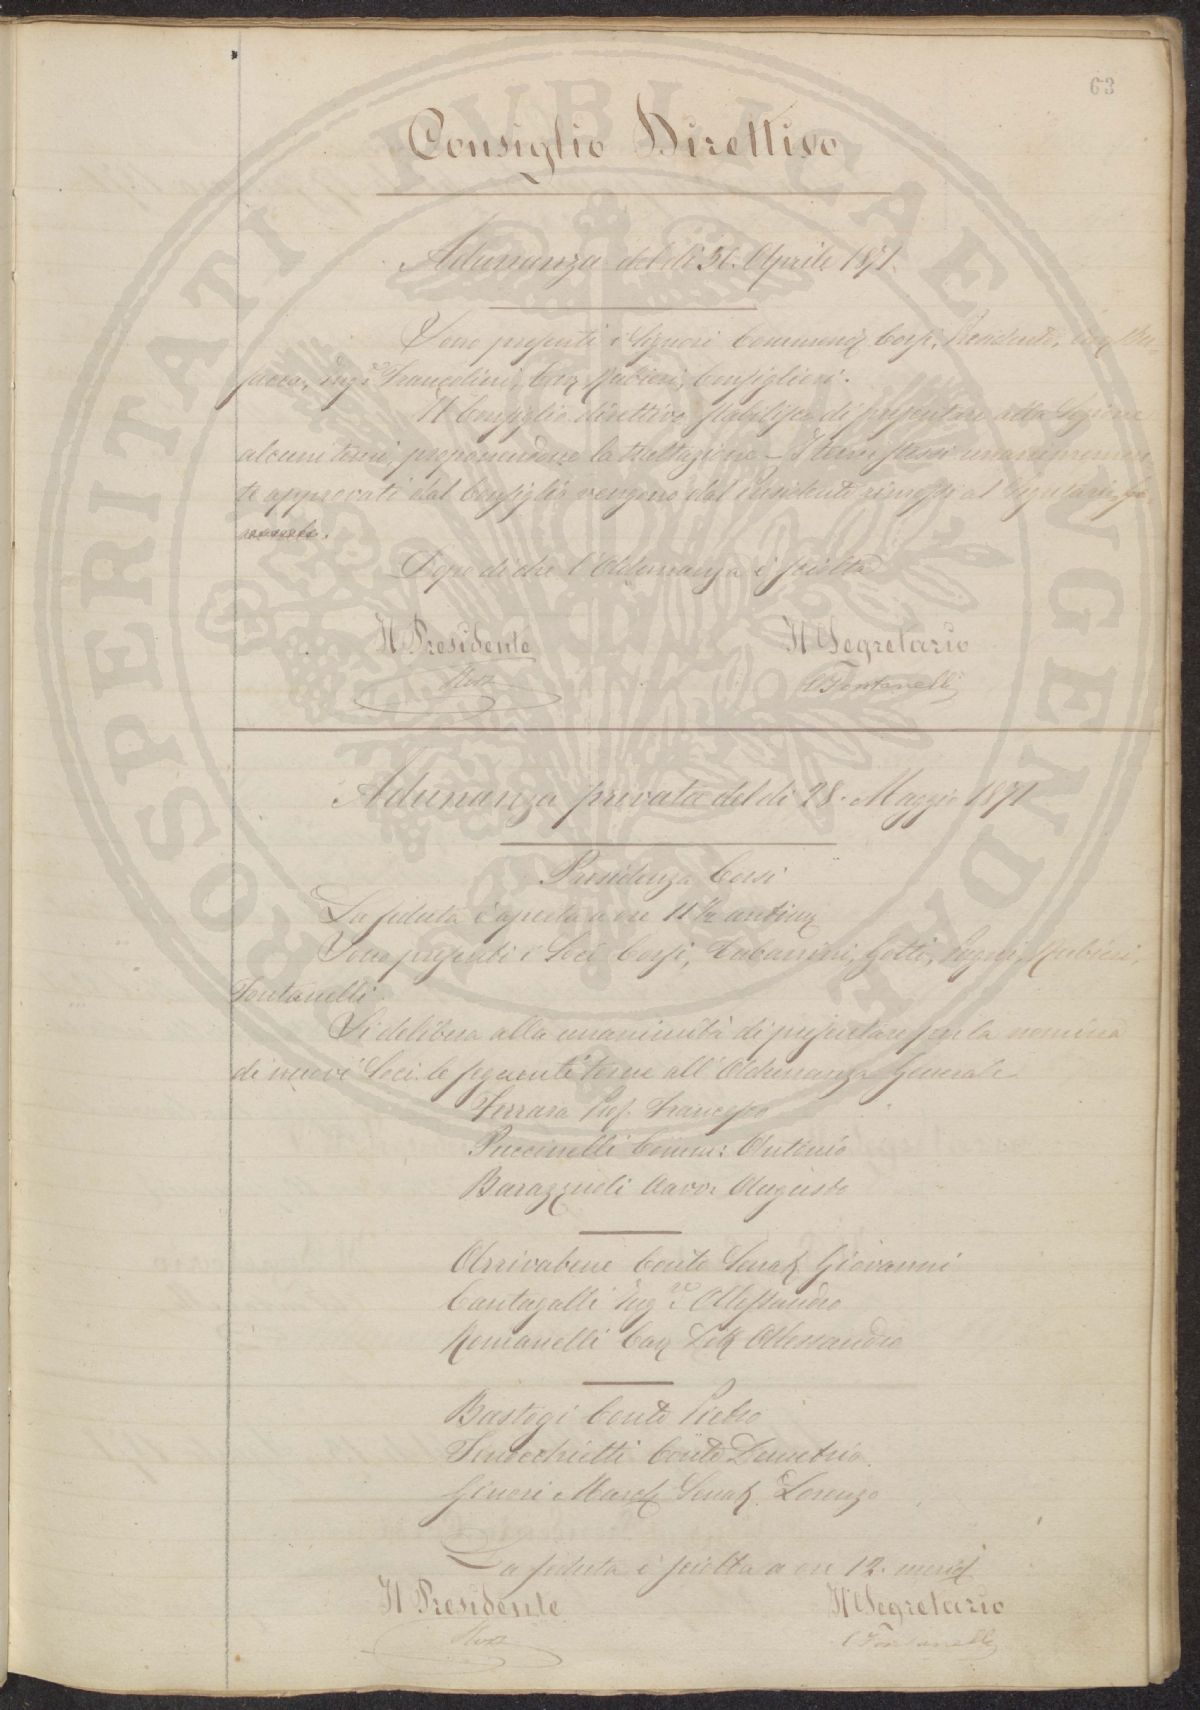 63
Consiglio Direttivo
Adunanza del dì Aprile 1871.
Sono presenti i Signori Commend. Corsi, Presidente, Cav. Bu-
sacca, ing.e Francolini, Cav. Rubieri, Consiglieri.
Il Consiglio direttivo stabilisce di presentare alla Sezione
alcuni temi, proponendone la trattazione — I temi stessi unanimemen-
te approvati dal Consiglio vengono dal Presidente rimessi al Segretario
Dopo di che l'Adunanza è sciolta
Il Presidente Il Segretario
C Fontanelli
Adunanza privata del dì 28. Maggio 1871
Presidenza Corsi
La seduta è aperta a ore 11 1/2 antim
Sono presenti i Soci Corsi, Tabarrini, Gotti, Pogni, Rubieri,
Fontanelli.
Si delibera alla unanimità di presentare per la nomina
di nuovi Soci le seguenti terne all'Adunanza Generale
Ferrara Prof. Francesco
Puccinelli Comm: Antonio
Barazzuoli Avvo: Augusto
Arrivabene Conte Senat. Giovanni
Cantagalli Ing.re Alessandro
Romanelli Cav. Alessandro
Bastogi Conte Pietro
Finocchietti Conte Demetrio.
Ginori March. Senat. Lorenzo
La seduta è sciolta a ore 12. merid.
Il Presidente Il Segretario
C Fontanelli
PROSPERITATI PVBLICAE AVGENDAE